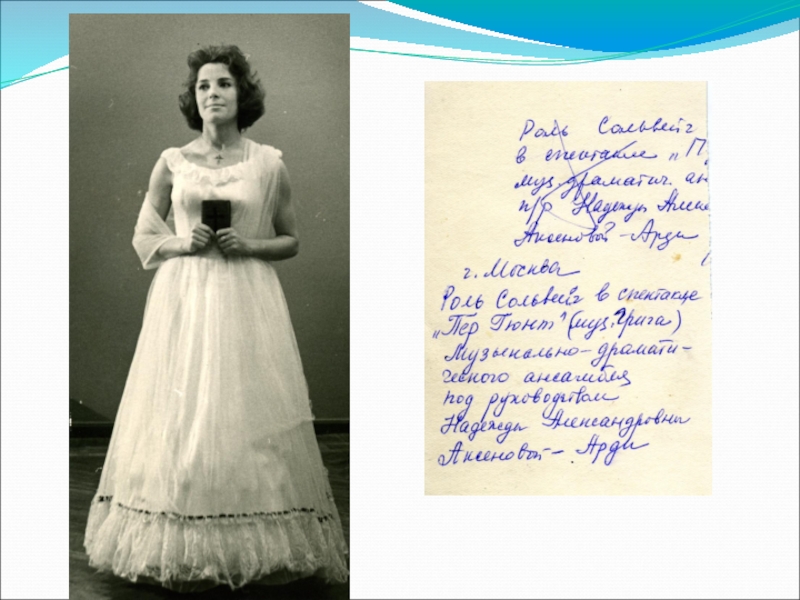 Роль Сольвейг
в спектакле „П
муз. драматич. ан
п/р Надежды Алекс
Аксеновой-Арди
г. Москва
Роль Сольвейг в спектакле
„Пер Гюнт" (муз. Грига)
Музыкально-драмати-
ческого ансамбля
под руководством
Надежды Александровны
Аксеновой-Арди